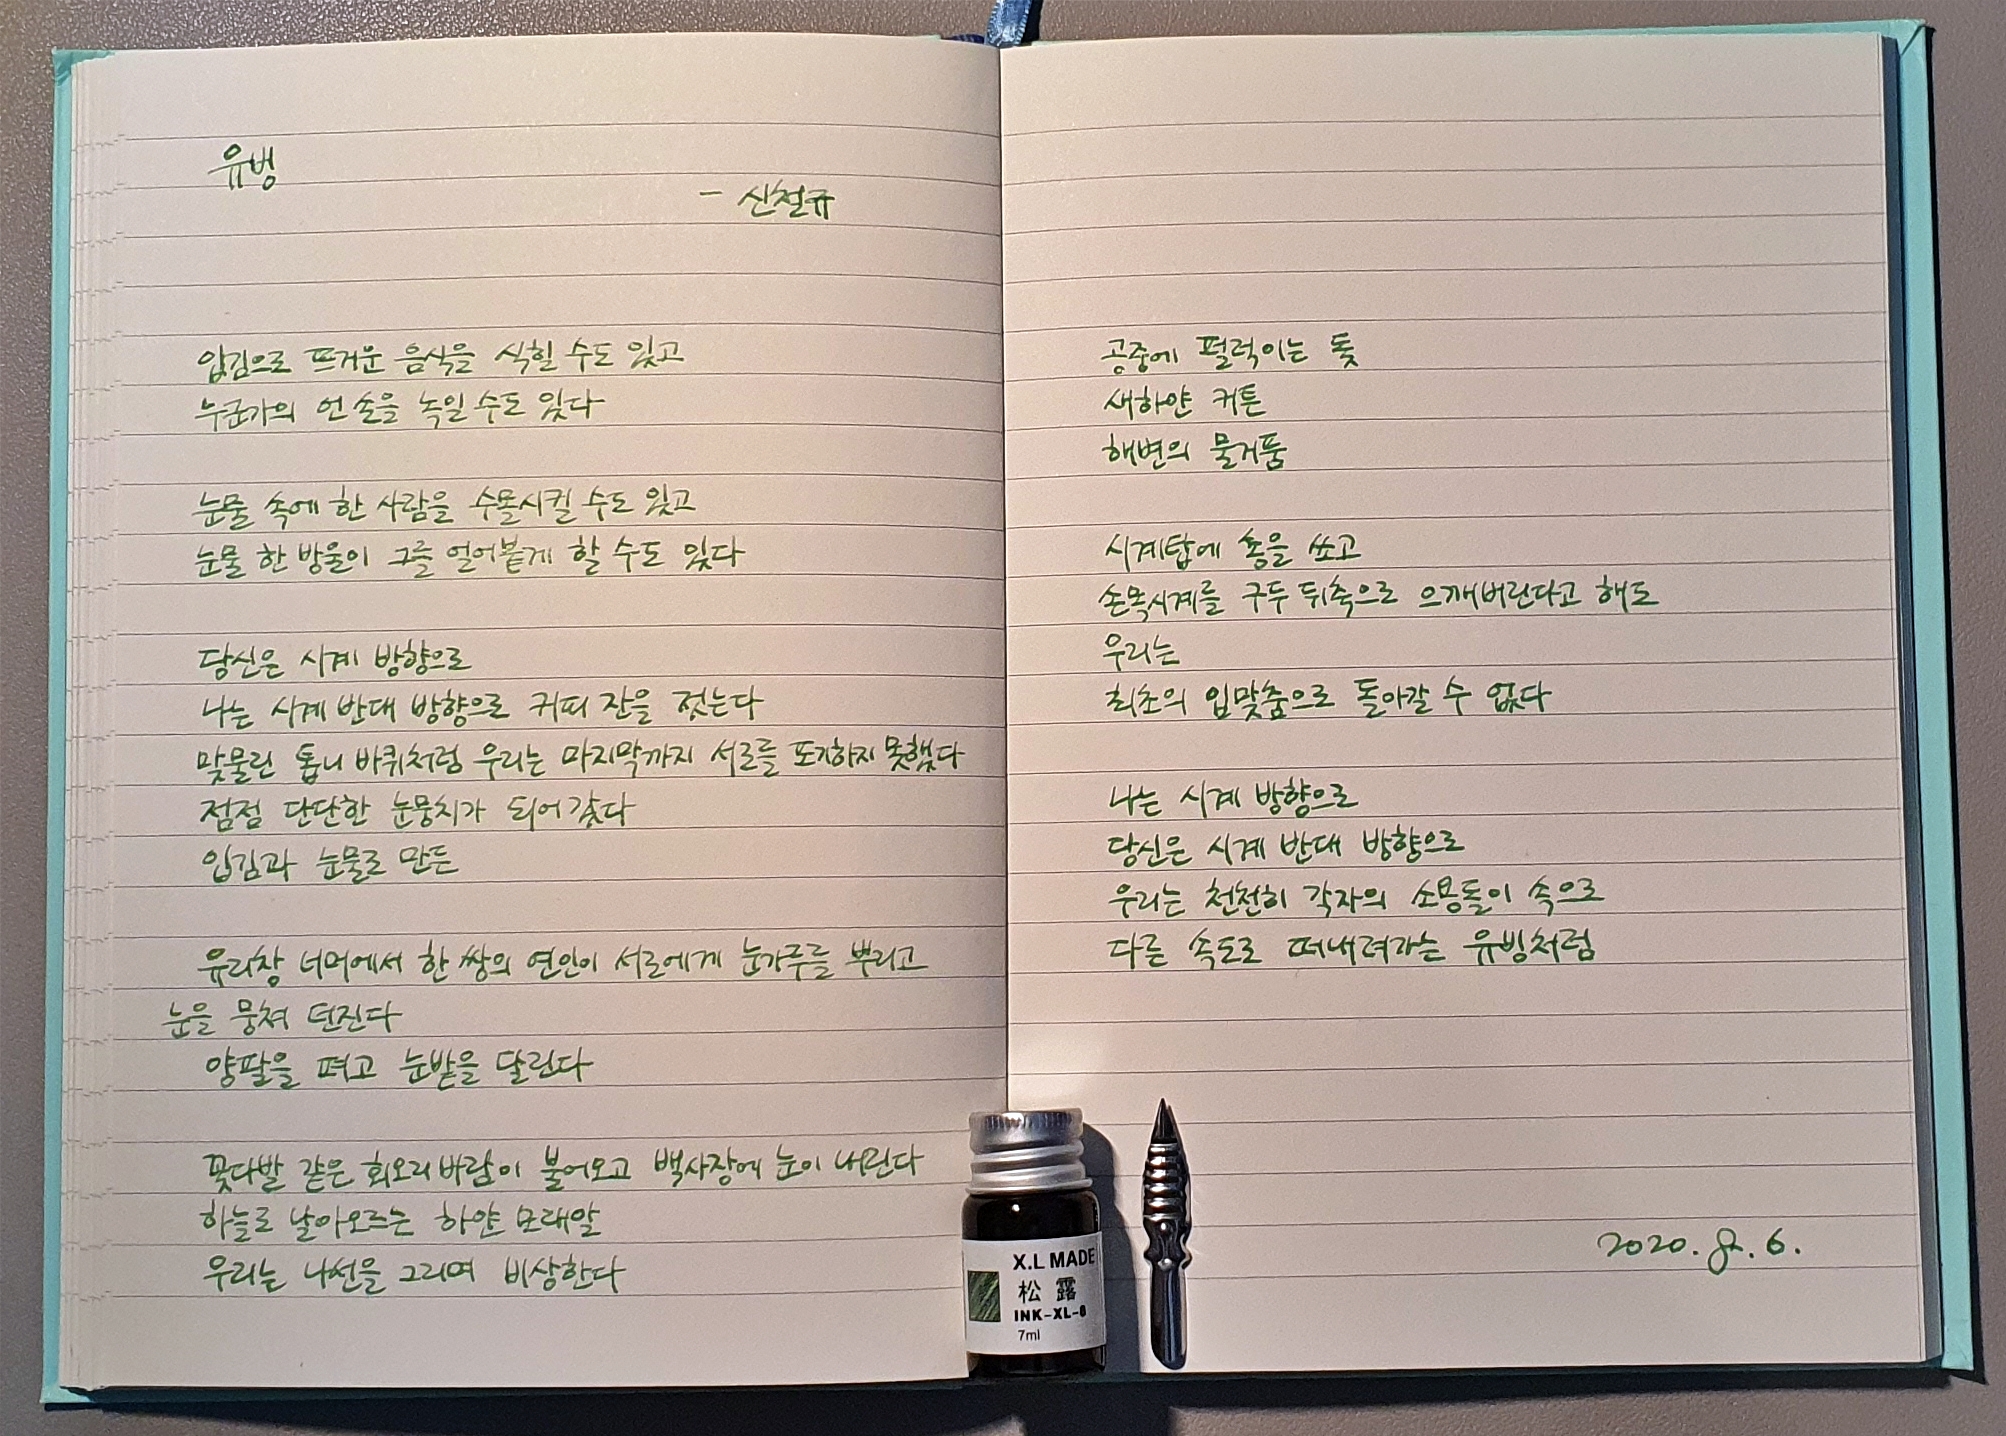 유빙
- 신철규
입김으로 뜨거운 음식을 식힐 수도 있고
누군가의 언 손을 녹일 수도 있다
눈물 속에 한 사람을 수몰시킬 수도 있고
눈물 한 방울이 그를 얼어붙게 할 수도 있다
당신은 시계 방향으로
나는 시계 반대 방향으로 커피 잔을 젓는다
맞물린 톱니바퀴처럼 우리는 마지막까지 서로를 포기하지 못했다
점점 단단한 눈뭉치가 되어갔다
입김과 눈물로 만든
유리창 너머에서 한 쌍의 연인이 서로에게 눈가루를 뿌리고
눈을 뭉쳐 던진다
양팔을 펴고 눈밭을 달린다
꽃다발 같은 회오리바람이 불어오고 백사장에 눈이 내린다
하늘로 날아오르는 하얀 모래알
우리는 나선을 그리며 비상한다
공중에 펄럭이는 돛
새하얀 커튼
해변의 물거품
시계탑에 총을 쏘고
손목시계를 구두 뒤축으로 으깨버린다고 해도
우리는
최초의 입맞춤으로 돌아갈 수 없다
나는 시계 방향으로
당신은 시계 반대 방향으로
우리는 천천히 각자의 소용돌이 속으로
다른 속도로 떠내려가는 유빙처럼
2020. 8. 6.
X.L MADE
松露
INK-XL-8
7ml